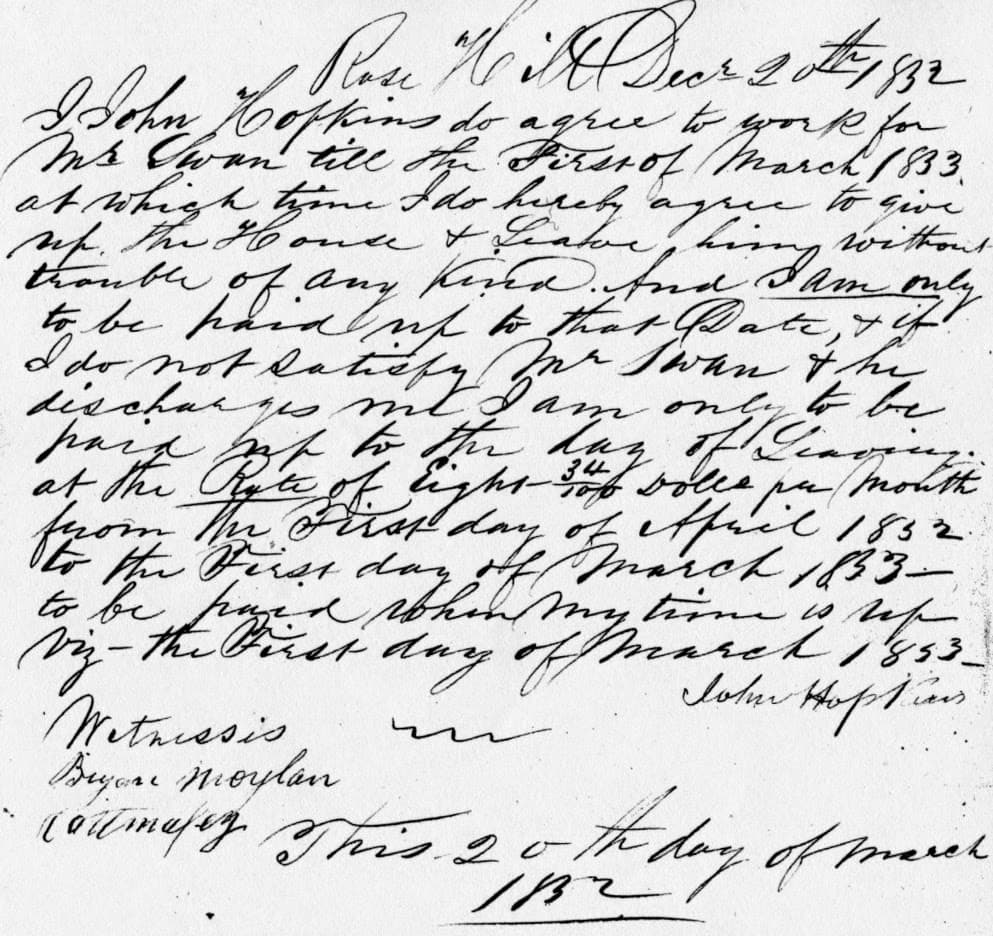 Rose Hill Decr 20th 1832
I John Hopkins do agree to work for
Mr Swan till the First of March 1833
at which time I do hereby agree to give
up the House & Leave him without
trouble of any kind. And I am only
to be paid up to that Date, & if
I do not satisfy Mr Swan & he
discharges me I am only to be
paid up to the day of Leaving.
at the Rate of Eight 34/100 Dolls per Month
from the First day of April 1832
to the First day of March 1833—
to be paid when my time is up
viz— the First day of March 1833—
John Hopkins
Witnessis
Bryan Moylan
This 20th day of March
1832